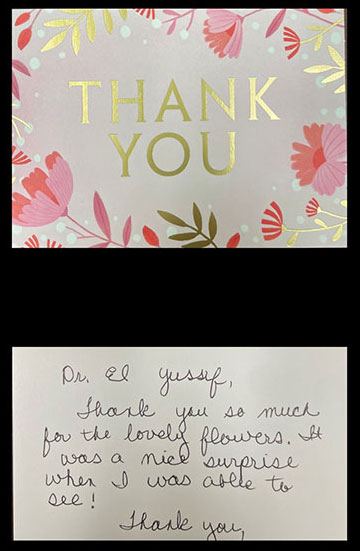 THANK
YOU
Dr. El Yussif,
Thank you so much
for the lovely flowers. It
was a nice surprise
when I was able to
see!
Thank you,